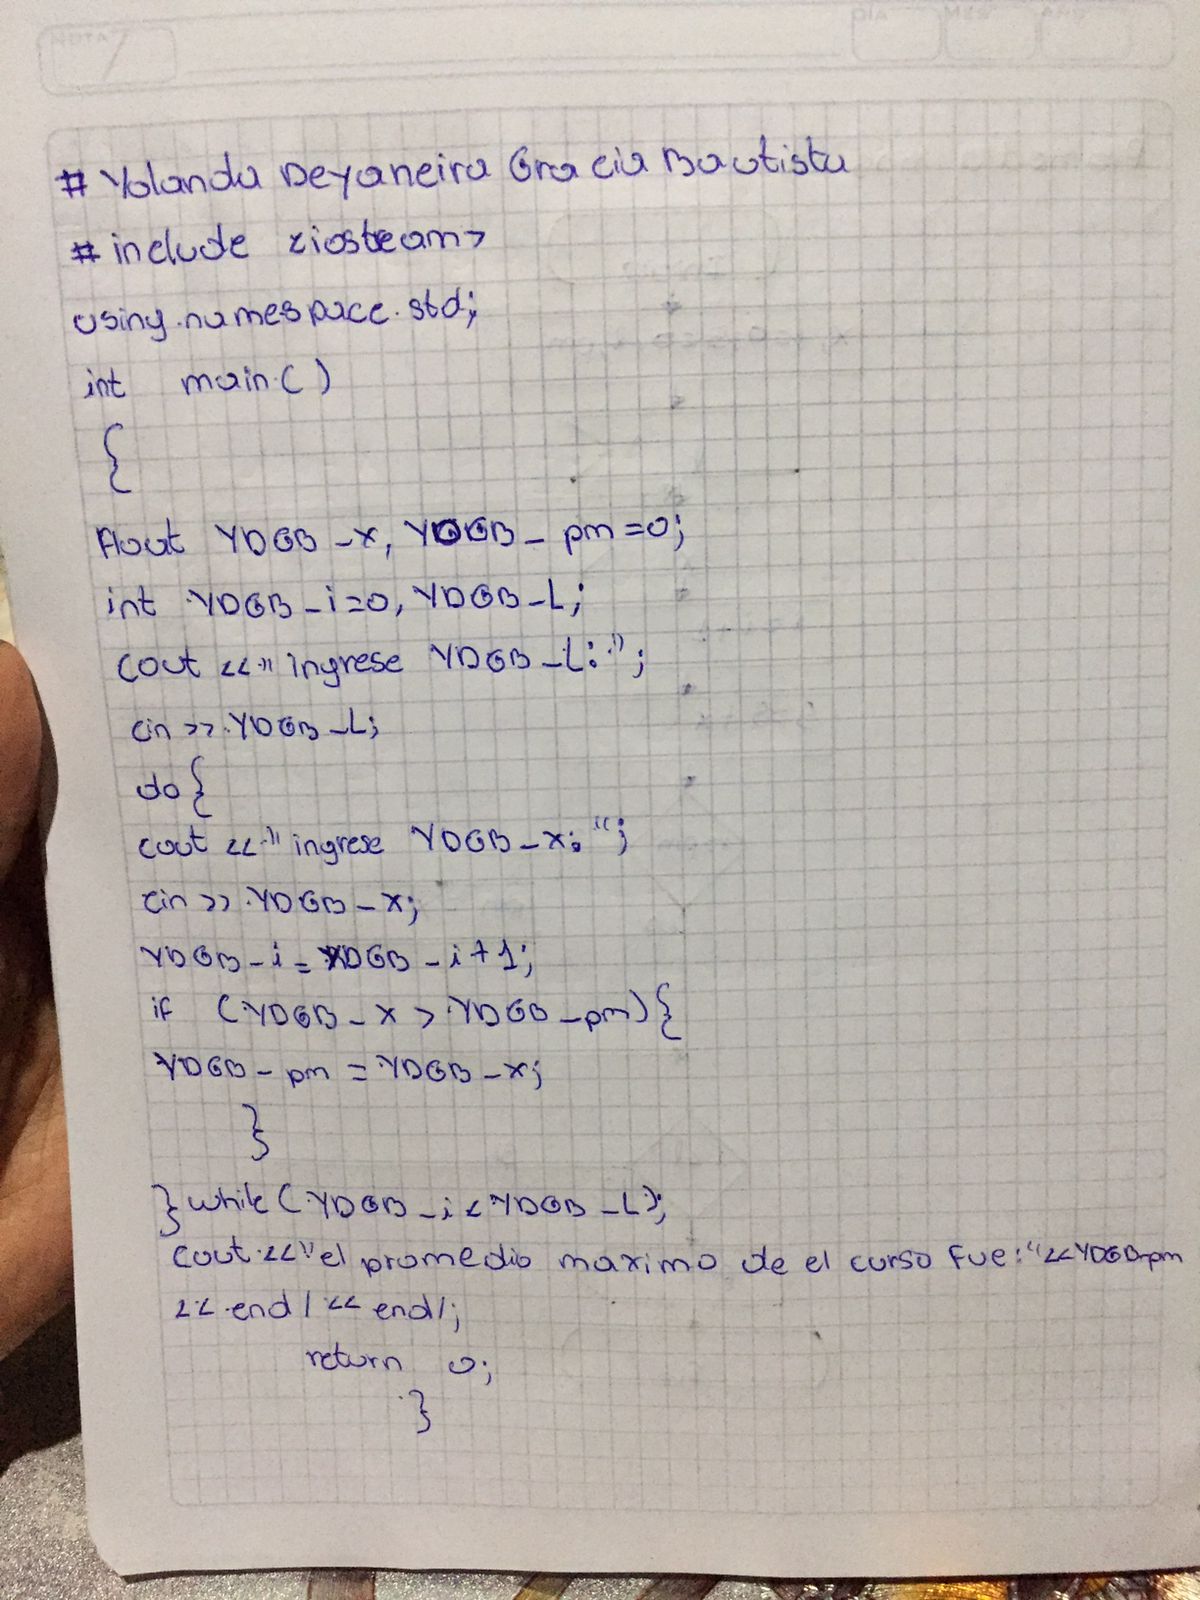 # Yolanda Deyaneira Gracia Bautista
# include <iosteam>
using namespace std;
int main ( )
{
float YDGB_x, YDGB_pm=0;
int YDGB_i=0, YDGB_L;
cout <<" ingrese YDGB_L: ";
cin >> YDGB_L;
do {
cout <<" ingrese YDGB_x: ";
cin >> YDGB_x;
YDGB_i = YDGB_i+1;
if (YDGB_x > YDGB_pm) {
YDGB_pm = YDGB_x;
}
} while (YDGB_i < YDGB_L);
cout <<" el promedio maximo de el curso fue: "<<YDGB_pm
<< endl << endl;
return 0;
}